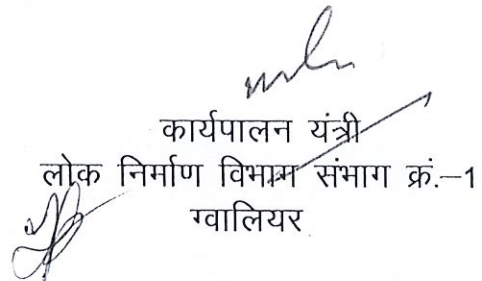 कार्यपालन यंत्री
लोक निर्माण विभाग संभाग क्रं.–1
ग्वालियर